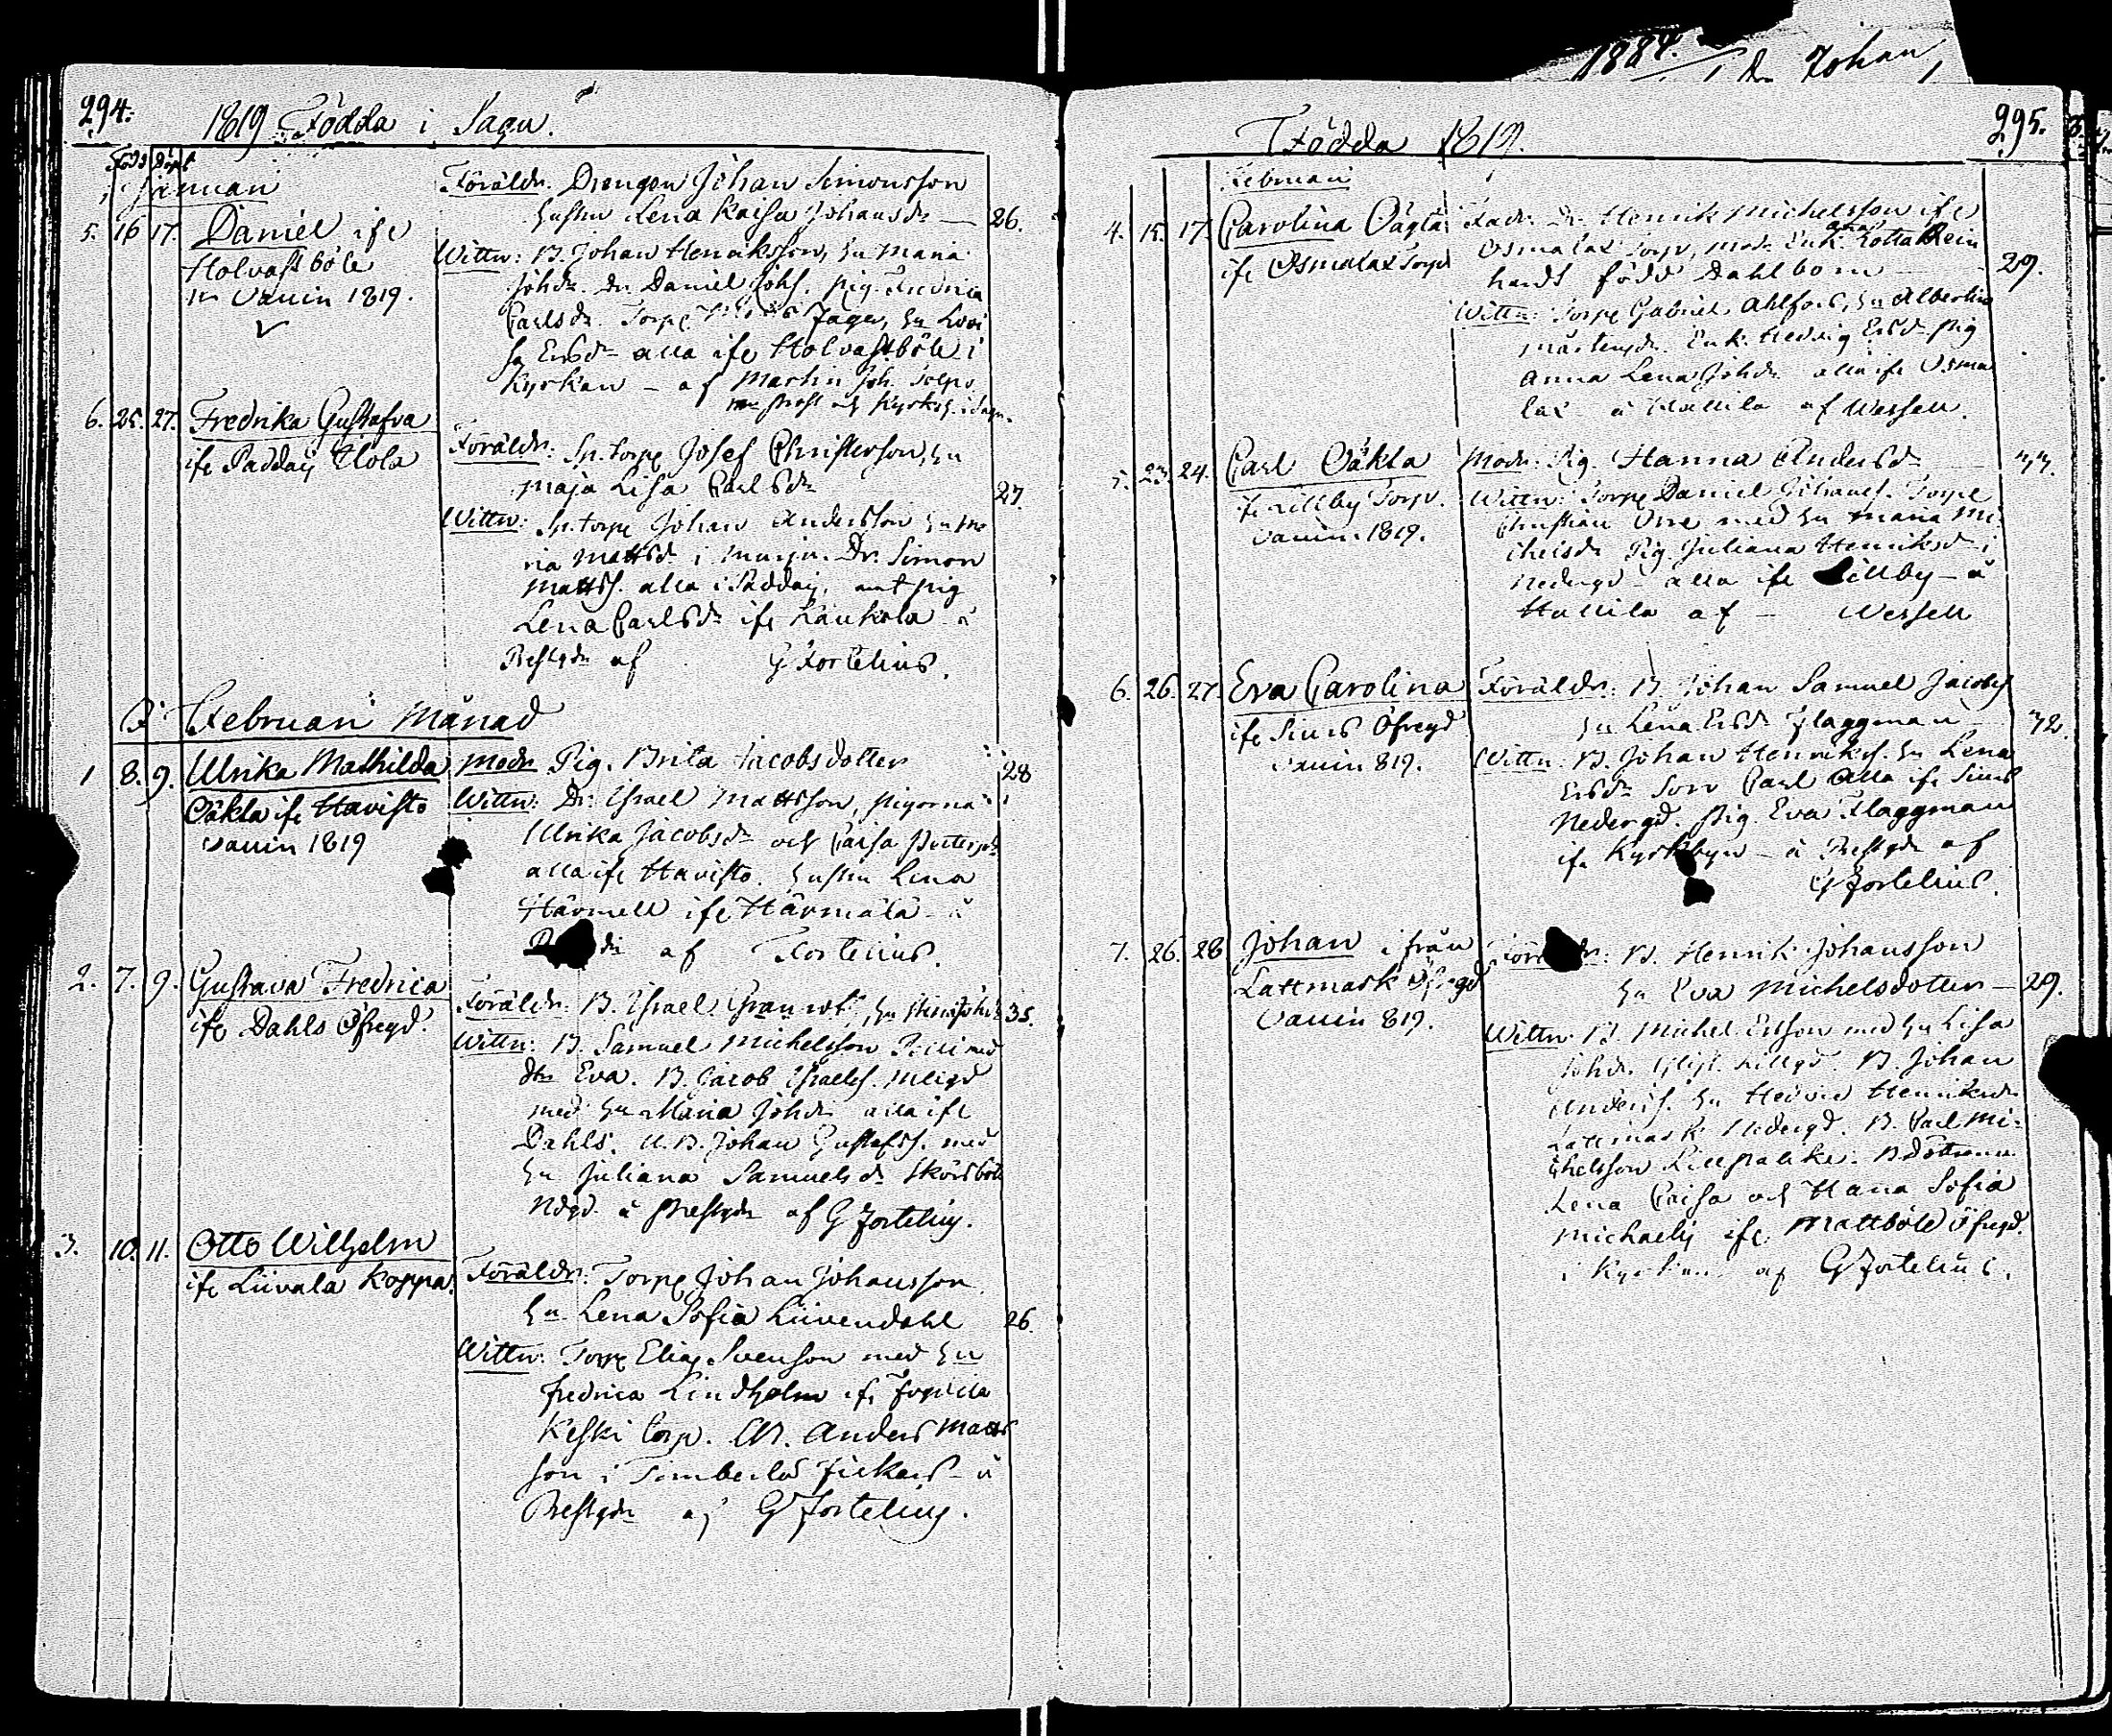 294.
1819 Födda i Sagu.
Född Döpt
Januari
5. 16 17. Daniel ifr
Holvastböle
Vaccin 1819.
Föräldr. Drengen Johan Simonsson
hustru Lena Kaisa Johansdr — 26.
Wittn: B. Johan Henriksson, hu Maria
Johdr. Dr. Daniel Johs. pig. Fredrica
Carlsdr. Torp. Jager, hu Lovi
sa Ersdr alla ifr Holvastböle i
Kyrkan — af Martin Joh. Tolpo
Prost och Kyrkoh. i Sagu.
6. 25. 27. Fredrika Gustafva
ifr Paddais Hola
Föräldr: Sp. torp Josef Christerson, hu
Maja Lisa Carlsdr 27.
Wittn: Sp. torp Johan Andersson hu Ma
ria Mattsd. i Dr. Simon
Matts. alla i Paddais, amt pig
Lena Carlsdr ifr Kaukola å
Prestgdn af G Fortelius.
Februari Månad
1 8. 9. Ulrika Mathilda
Oäkta ifr Havisto
Vaccin 1819
Modr Pig. Brita Jacobsdotter 28
Wittn: Dr. Israel Mattsson, pigorna
Ulrika Jacobsdr och Caisa Pettersdr
alla ifr Havisto. hustru Lena
Härmell ifr Härmälä å
af Fortelius.
2. 7. 9. Gustava Fredrica
ifr Dahls Öfregd.
Föräldr: B. Israel Granrot, hu Stina Johdr 35.
Wittn: B. Samuel Michelsson med
dtr Eva. B. Jacob Israels.
med hu Maria Johdr alla ifr
Dahls. U. B. Johan Gustafss. med
hu Juliana Samuelsdr Skörsböle
Ndgd å Prestgdn af G Fortelius.
3. 10. 11. Otto Wilhelm
ifr Liivala Koppa.
Föräldr: Torp Johan Johansson
hu Lena Sofia Liivendahl 26.
Wittn: Torp Elias Svenson med hu
Fredrica Lindholm ifr
Keski torp. Anders Matts
son i Timberla å
Prestgdn af G Fortelius.
1884. Dr Johan
295.
Födda 1819.
Februari
4. 15. 17. Carolina Oägta
ifr Osmalax Torp
Fadr. Dr. Henrik Michelsson ifr
Osmalax Torp, Modr Enk. Lotta Rein
hardt född Dahlbom 29.
Wittn: Torp Gabriel Ahlfors, hu Albertina
Mårtensdr. Enk. Hedvig Ersdr pig
Anna Lena Johdr alla ifr Osma
lax å Hallila af Wessell.
5. 23. 24. Carl Oäkta
ifr Lillby Torp.
Vaccin. 1819.
Modr: Pig. Hanna Andersdr 33.
Wittn: Torp Daniel Johans. Torp
Christian Orre med hu Maria Mi
chelsdr Pig. Juliana Henriksd i
Nedergd — alla ifr Lillby — å
Hallila af — Wessell
6. 26. 27. Eva Carolina
ifr Sines Öfregd
Vaccin 819.
Föräldr: B. Johan Samuel Jacobs
hu Lena Ersdr Flaggman 32.
Wittn: B. Johan Henriks. hu Lena
Ersdr Son Carl alla ifr Sines
Nedergd. Pig. Eva Flaggman
ifr Kyrkbyn — å Prestgdn af
G Fortelius.
7. 26. 28 Johan ifrån
Lattmark Öfregd
Vaccin 819.
Föräldr: B. Henrik Johansson
hu Eva Michelsdotter — 29.
Wittn: B. Michel Ersson med hu Lisa
Johdr. Lillgd. B. Johan
Anders. hu Hedvid Henriksdr
Lattmark Nedergd. B. Carl Mi-
chelsson Lillpalike. B döttrarna
Lena Caisa och Hana Sofia
Michaelis ifr Mattböle Öfregd.
i Kyrkan af G Fortelius.